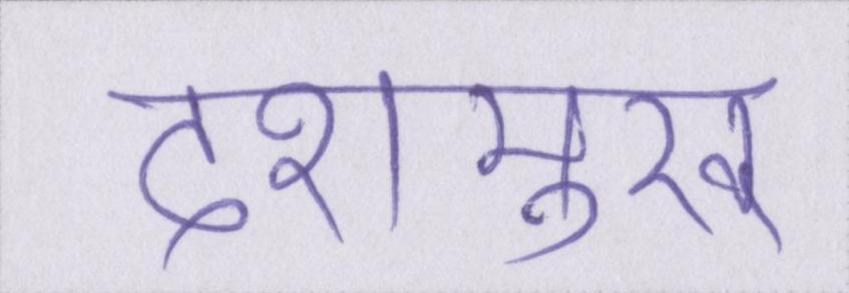 दशमुख